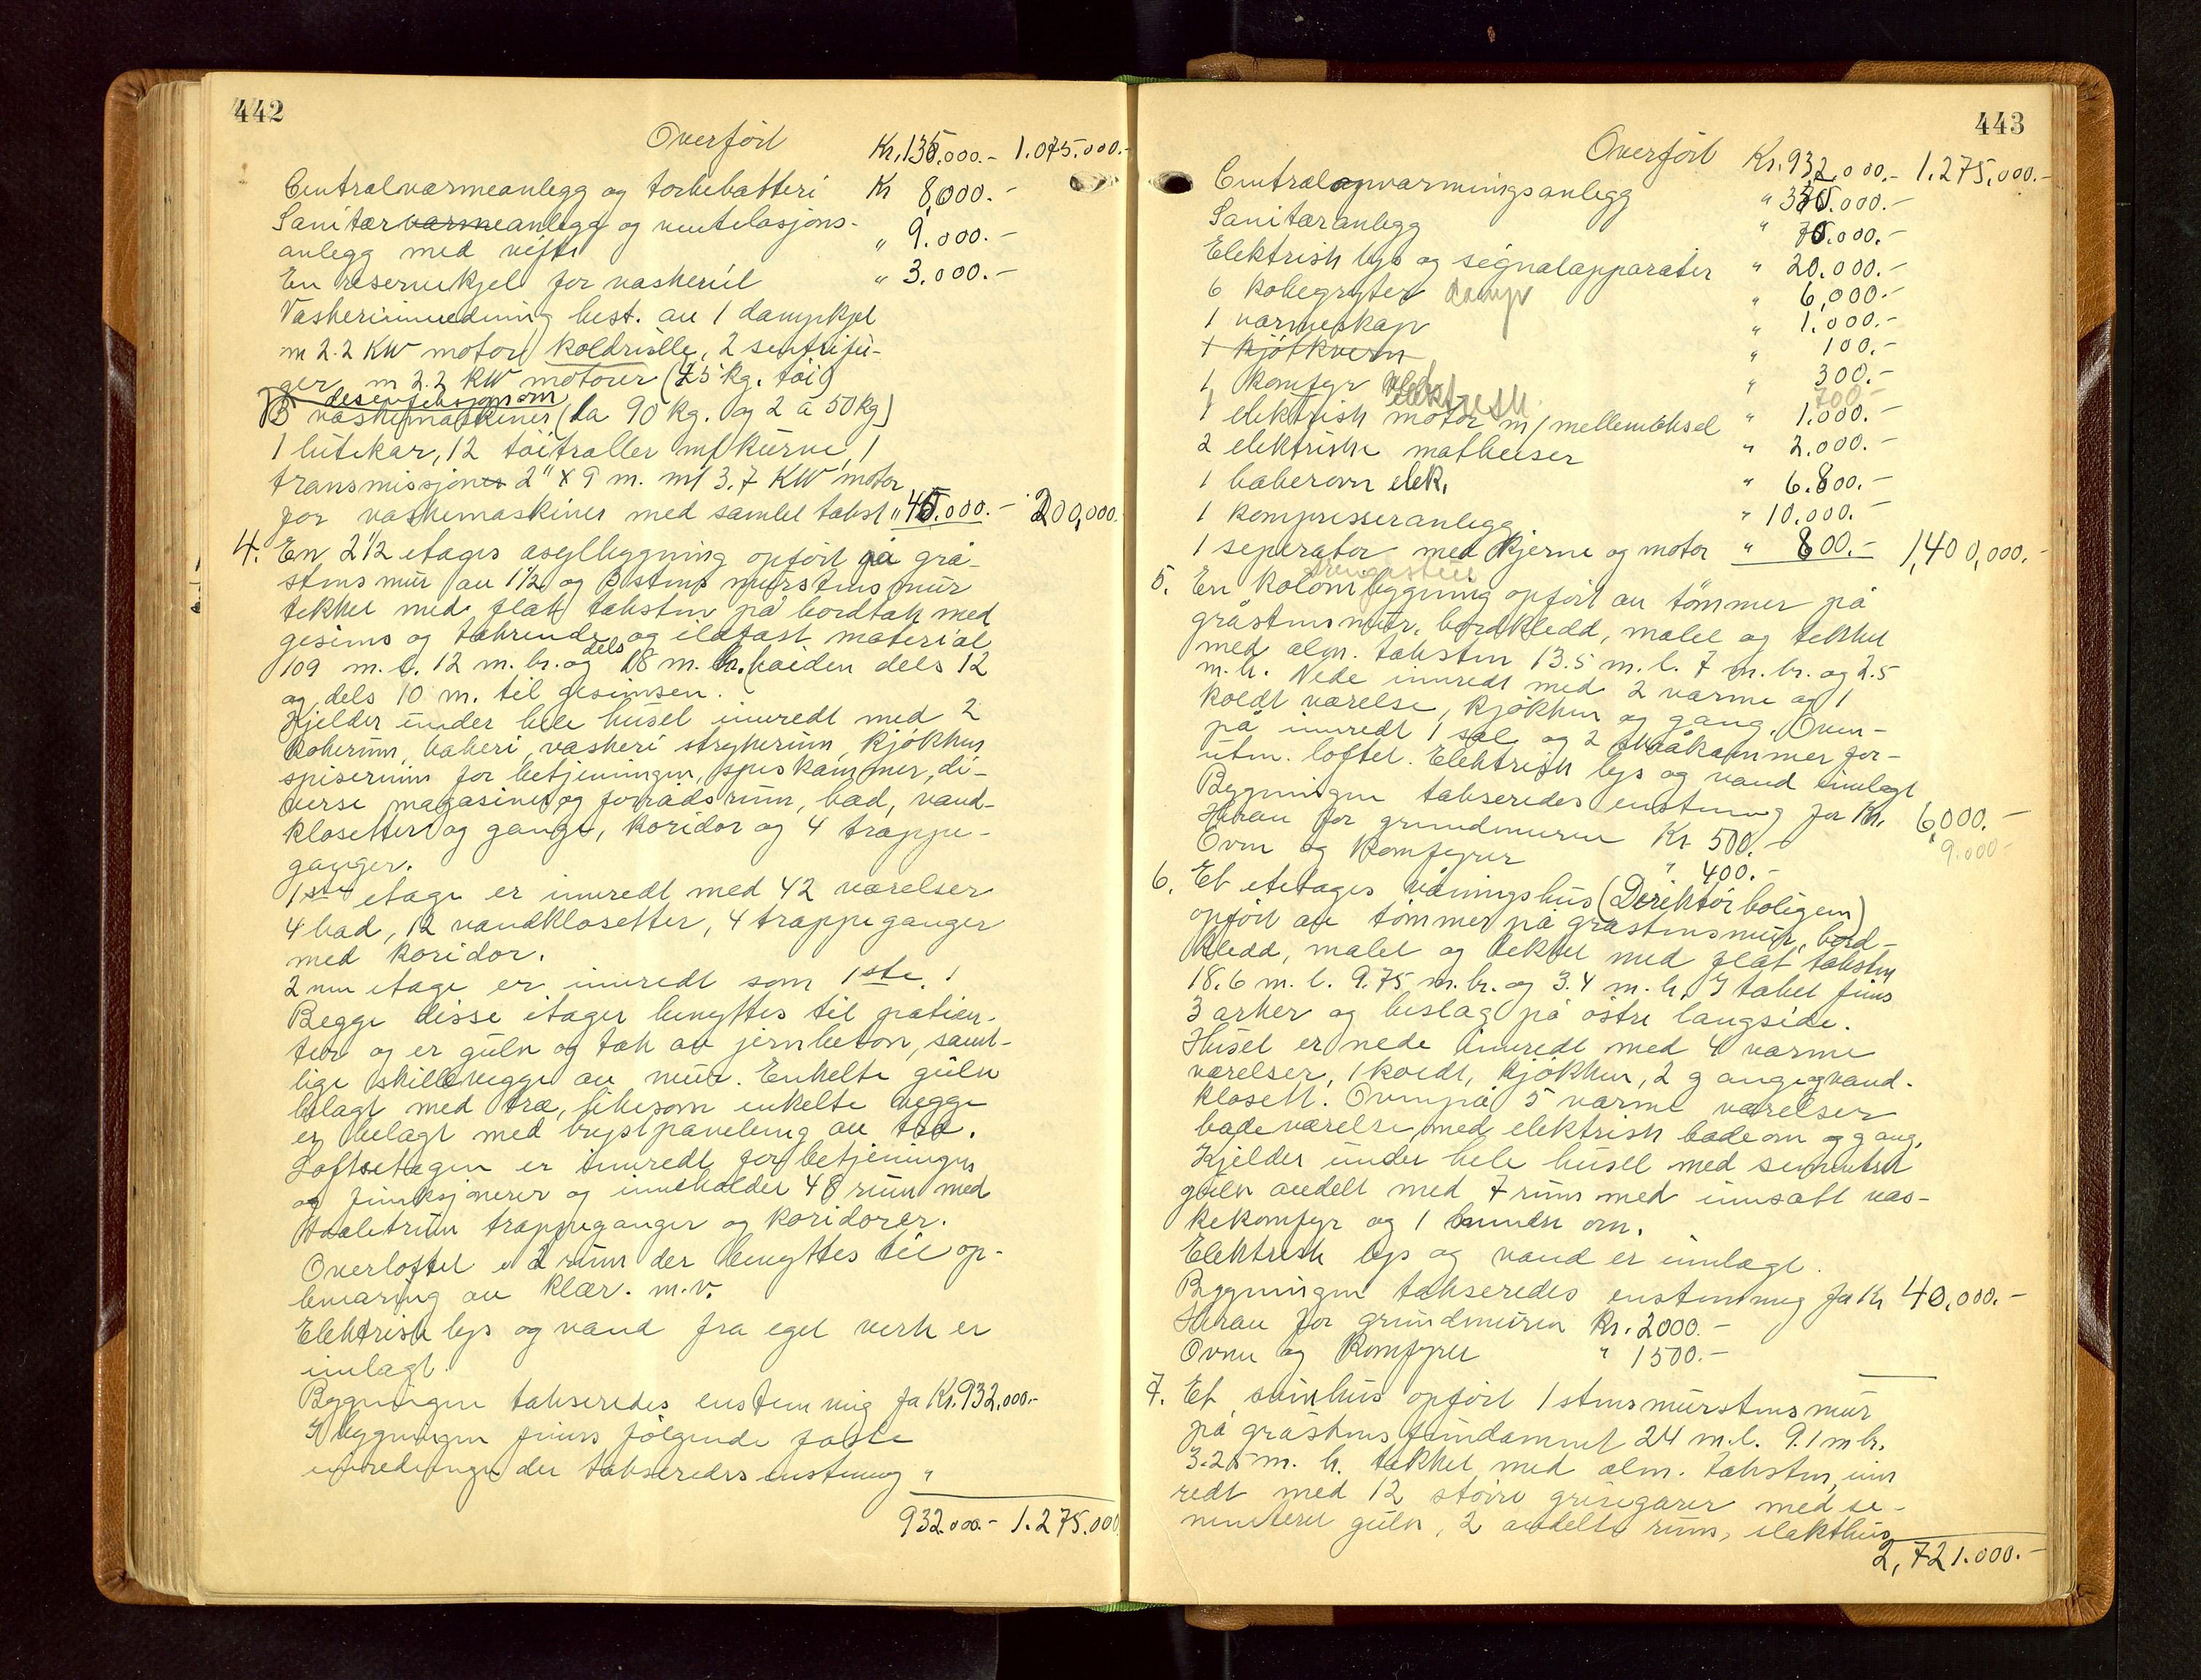 442
Overført Kr. 135.000.- 1.075.000.-
Centralvarmeanlegg og tørkebatteri Kr 8,000.-
Sanitærvarmeanlegg og ventelasjons-
anlegg med vifte " 9.000.-
En reservekjel for vaskeriet " 3.000.-
Vaskeriinnredning best. av 1 dampkjel
m 2.2 KW motor, koldrulle, 2 sentrifu-
ger m 2.2 KW motorer (25 kg. tøi)
desenfeksjonsovn
3 vaskemaskiner (1 a 90 kg. og 2 a 50 kg)
1 lutekar, 12 tøitraller m/kurve, 1
transmissjon 2" x 9 m. m/ 3.7 KW motor
for vaskemaskiner med samlet takst " 45.000.- 200,000.
4. En 2 1/2 etages asylbygning opført på grå-
stens mur av 1 1/2 og 3 stens murstens mur
tekket med flat takstein på bordtak med
gesims og takrende og ildfast material
109 m. l. 12 m. br. og dels 18 m. br. høiden dels 12
og dels 10 m. til gesimsen.
Kjelder under hele huset innredt med 2
kokerum, bakeri, vaskeri strykerum, kjøkken
spiserum for betjeningen, spiskammer, di-
verse magasiner og forrådsrum, bad, vand-
klosetter og gange, koridor og 4 trappe-
ganger.
1ste etage er innredt med 42 værelser
4 bad, 12 vandklosetter, 4 trappeganger
med koridor.
2nen etage er innredt som 1ste.
Begge disse etager benyttes til patien-
ter og er gulv og tak av jernbeton, samt-
lige skillevegge av mur. Enkelte gulv
belagt med træ, likesom enkelte vegge
er belagt med brystpaneling av træ.
Loftsetagen er innredt for betjeningen
og funksjonerer og inneholder 48 rum med
toaletrum trappeganger og koridorer.
Overloftet er 2 rum der benyttes til op-
bevaring av klær. m.v.
Elektrisk lys og vand fra eget verk er
innlagt.
Bygningen takseredes enstemmig for Kr. 932,000.-
I bygningen finns følgende faste
innredninger der takseredes enstemmig "
932.000.- 1.275.000
443
Overført Kr. 932,000.- 1.275,000.-
Centralopvarmingsanlegg " 350.000.-
Sanitæranlegg " 75.000.-
Elektrisk lys og signalapparater " 20.000.-
6 kokegryter damp " 6,000.-
1 varmeskap " 1.000.-
1 kjøtkvern " 100.-
1 komfyr elektrisk " 300.-
700.-
1 elektrisk motor m/mellemaksel " 1.000.-
2 elektriske matheiser " 2.000.-
1 bakerovn elek. " 6.800.-
1 kompresseranlegg " 10.000.-
1 seperator med kjerne og motor " 800.- 1,400,000.-
drengestue
5. En kolonibygning opført av tømmer på
gråstensmur, bordkledd, malet og tekket
med alm. takstein 13.5 m. l. 7 m. br. og 2.5
m. h. Nede innredt med 2 varme og 1
koldt værelse, kjøkken og gang. Oven-
på innredt 1 sal og 2 småkammer for-
uten loftet. Elektrisk lys og vand innlagt
Bygningen takseredes enstemmig for Kr. 6,000.-
9.000-
Herav for grundmuren Kr 500.-
Ovne og komfyrer " 400.-
6. Et etetages våningshus (Derektørboligen)
opført av tømmer på gråstensmur, bord-
kledd, malet og tekket med flat takstein
18.6 m. l. 9.75 m. br. og 3.4 m. h. I taket finns
3 arker og beslag på østre langside.
Huset er nede innredt med 4 varme
værelser, 1 koldt, kjøkken, 2 gange og vand-
klosett. Ovenpå 5 varme værelser
badeværelse med elektrisk badeovn og gang.
Kjelder under hele huset med sementert
gulv avdelt med 7 rum med innsatt vas-
kekomfyr og 1 brenneovn.
Elektrisk lys og vand er innlagt.
Bygningen takseredes enstemmig for Kr 40,000.-
Herav for grundmuren Kr. 2000.-
Ovne og komfyrer " 1500.-
7. Et svinhus opført 1 stens murstens mur
på gråstens fundament 24 m. l. 9.1 m br.
3.25 m. h. tekket med alm. takstein, inn
redt med 12 større grisegarer med se-
menteret gulv, 2 avdelte rum, slakthus
2,721.000.-